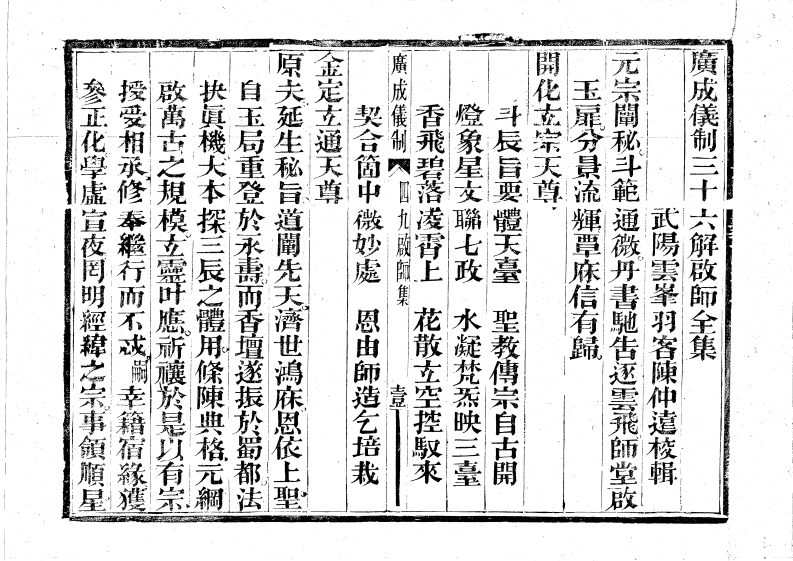 廣成儀制三十六解啟師全集
武陽雲峯羽客陳仲遠校輯
元宗闡秘斗範通微丹書馳告逐雲飛師堂啟
玉扉分景流輝覃庥信有歸
開化立宗天尊
斗辰旨要體天臺 聖教傳宗自古開
燈象星文聯七政 水凝梵炁映三臺
香飛碧落凌霄上 花散立空控馭來
廣成儀制 四九啟師集
契合箇中微妙處 恩由師造乞培栽
金定立通天尊
原夫延生秘旨道闡先天濟世鴻庥恩依上聖
自玉局重登於永壽而香壇遂振於蜀都法
抉眞機大本探三辰之體用條陳典格元綱
啟萬古之規模立靈叶應祈禳於是以有宗
授受相承修奉繼行而不忒嗣幸籍宿緣獲
參正化學虛宣夜罔明經緯之宗事領順星